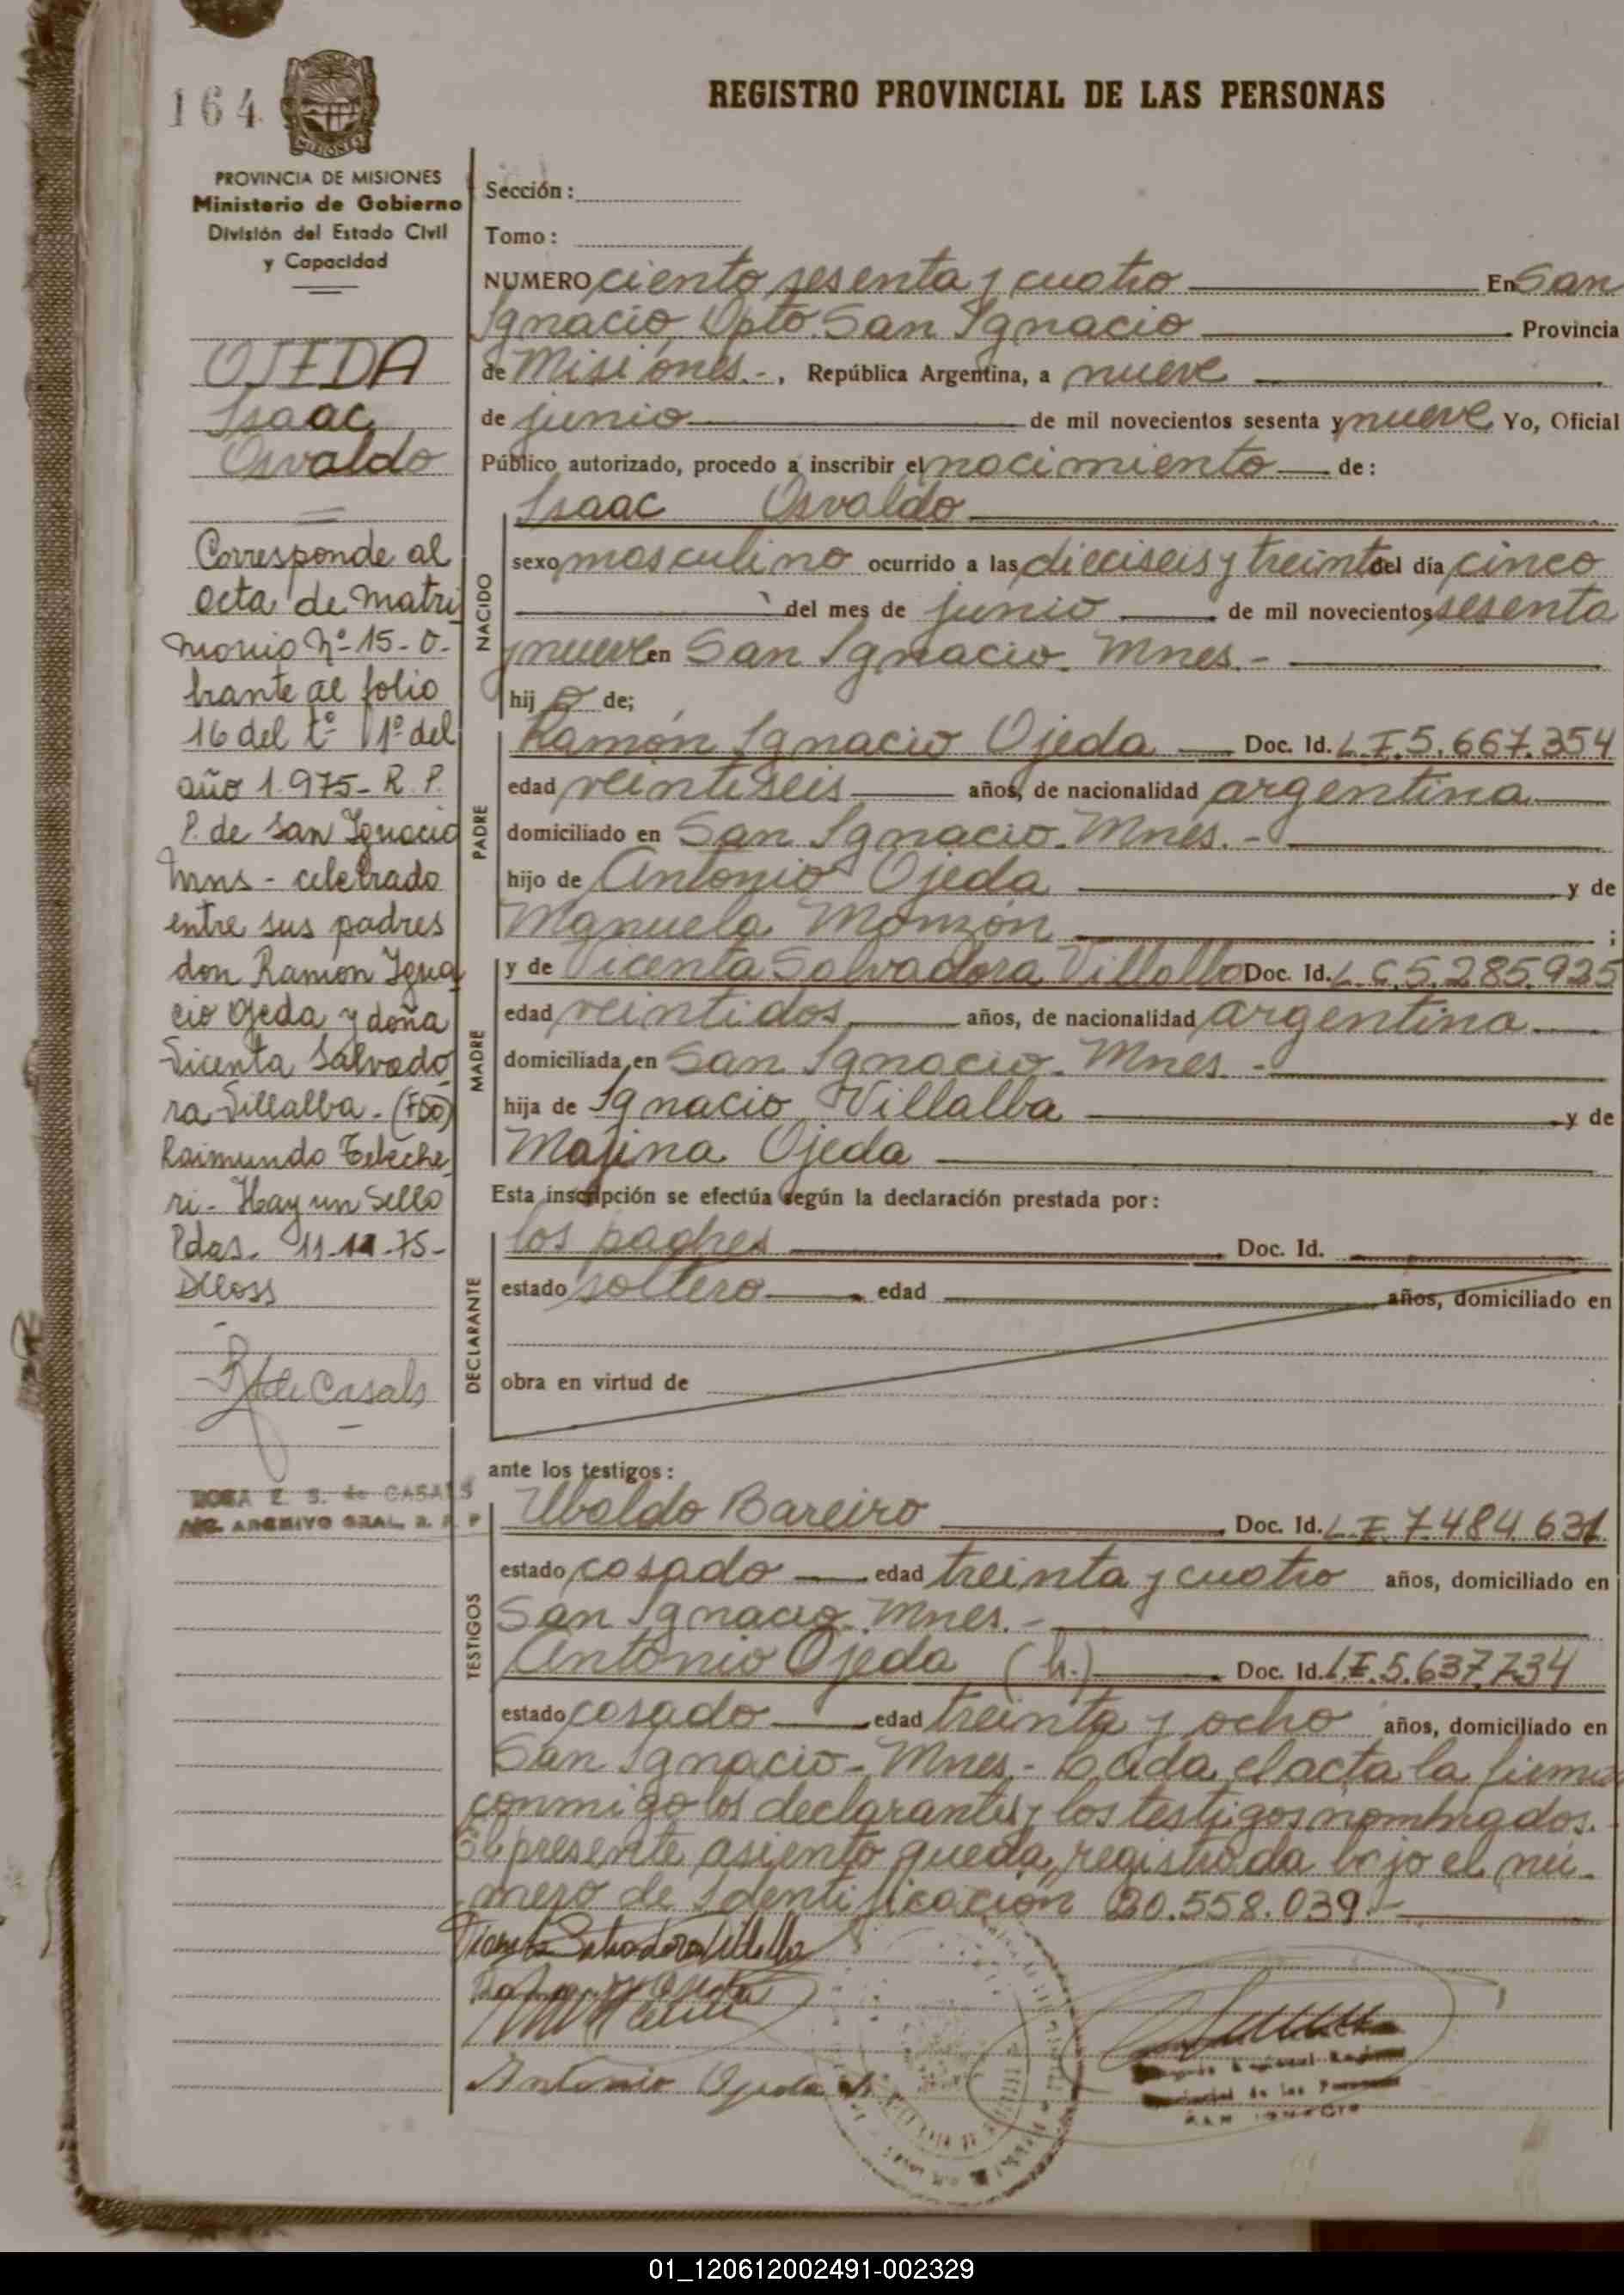 164
MISIONES
PROVINCIA DE MISIONES
Ministerio de Gobierno
División del Estado Civil
y Capacidad
OJEDA
Isaac
Osvaldo
Corresponde al
acta de matri
monio Nº 15 - o-
brante al folio
16 del tº 1º del
año 1.975 - R. P.
P. de San Ignacio
Mns - celebrado
entre sus padres
don Ramon Igna
cio Ojeda y doña
Vicenta Salvado
ra Villalba - (FDO)
Raimundo
ri - Hay un Sello
Pdas. 11-11-75-
de Casals
ROSA E. S. de CASALS
ARCHIVO GRAL. R. P. P
REGISTRO PROVINCIAL DE LAS PERSONAS
Sección:
Tomo:
NUMERO ciento sesenta y cuatro En San
Ignacio, Dpto San Ignacio Provincia
de Misiones.-, República Argentina, a nueve
de junio de mil novecientos sesenta y nueve Yo, Oficial
Público autorizado, procedo a inscribir el nacimiento de:
NACIDO
Isaac Osvaldo
sexo masculino ocurrido a las dieciseis y treinta del día cinco
del mes de junio de mil novecientos sesenta
y nueve en San Ignacio. Mnes.-
hij o de;
PADRE
Ramón Ignacio Ojeda Doc. Id. L E 5.667.354
edad veintiseis años, de nacionalidad argentina
domiciliado en San Ignacio. Mnes.-
hijo de Antonio Ojeda y de
Manuela Monzón ;
MADRE
y de Vicenta Salvadora Villalba Doc. Id. L C 5.285.925
edad veintidos años, de nacionalidad argentina
domiciliada en San Ignacio. Mnes -
hija de Ignacio Villalba y de
Ojeda
Esta inscripción se efectúa según la declaración prestada por:
DECLARANTE
los padres Doc. Id.
estado soltero edad años, domiciliado en
obra en virtud de
ante los testigos:
TESTIGOS
Ubaldo Bareiro Doc. Id. L E 7484631
estado casado edad treinta y cuatro años, domiciliado en
San Ignacio. Mnes.-
Antonio Ojeda (h.) Doc. Id. L E 5.637.234
estado casado edad treinta y ocho años, domiciliado en
San Ignacio - Mnes - el acta la firman
conmigo los declarantes y los testigos nombrados.
El presente asiento queda registrada bajo el nú-
mero de Identificación 20.558.039.-
Vicenta Salvadora Villalba
Antonio Ojeda h
SAN IGNACIO
01_120612002491-002329